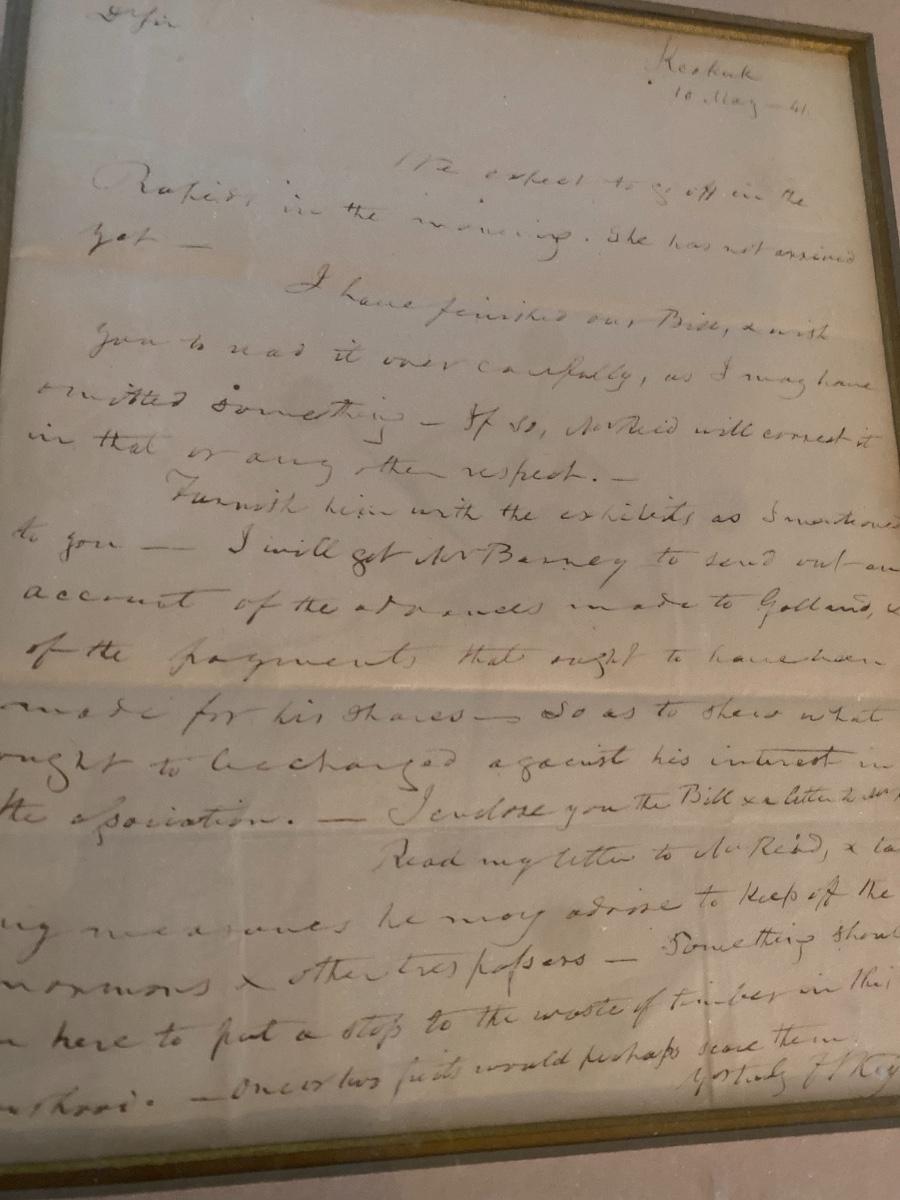 Dr Sir
Keokuk
10 May - 41
We expect to go off in the
Rapids in the morning. She has not arrived
yet —
I have finished our Bill, & wish
you to read it over carefully, as I may have
omitted something — If so, Mr Reid will correct it
in that or any other respect. —
Furnish him with the exhibits as I mentioned
to you — I will get Mr Barney to send out an
account of the advances made to Galland, &
of the payments that ought to have been
made for his shares — so as to shew what
ought to be charged against his interest in
the association. — I enclose you the Bill & a letter to
Read my letter to Mr Reid, &
measures he may advise to keep off the
mormons & other trespassers — Something
here to put a stop to the waste of timber in this
. — One or two suits would perhaps scare them
Yrs truly F S Key